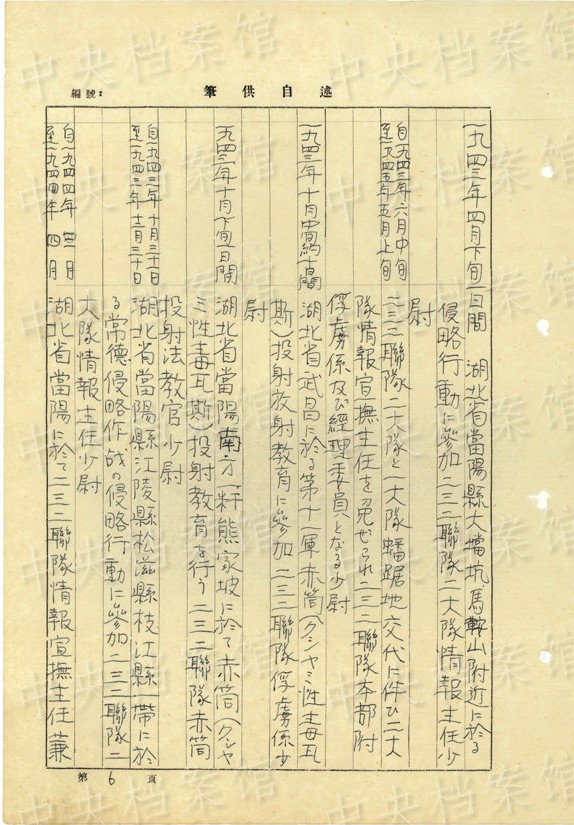 編號：
述自供筆
一九四三年四月下旬一日間　湖北省當陽縣大擋坑馬鞍山附近に於る
侵略行動に參加二三二聯隊二大隊情報主任少
尉
自一九四三年六月中旬
至一九四五年五月上旬
二三二聯隊二大隊と一大隊蟠踞地交代に伴ひ二大
隊情報宣撫主任を免ぜられ二三二聯隊本部附
俘虜係及び經理委員となる少尉
一九四三年十月中旬約十日間　湖北省武昌に於る第十一軍赤筒（クシャミ性毒瓦
斯）投射放射教育に參加二三二聯隊俘虜係少
尉
一九四三年十月下旬一日間　湖北省當陽南方一粁熊家坡に於て赤筒（クシャ
ミ性毒瓦斯）投射教育を行う二三二聯隊赤筒
投射法教官少尉
自一九四三年十月三十日
至一九四三年十二月三十日
湖北省當陽縣江陵縣松滋縣枝江縣一帶に於
る常德侵略作战の侵略行動に參加二三二聯隊二
大隊情報主任少尉
自一九四四年　月
至一九四四年　四月
湖北省當陽に於て二三二聯隊情報宣撫主任兼
第6頁
中央档案馆